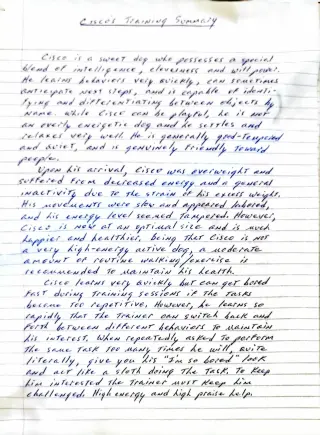 Cisco's Training Summary
Cisco is a sweet dog who possesses a special
blend of intelligence, cleverness and willpower.
He learns behaviors very quickly, can sometimes
anticipate next steps, and is capable of identi-
fying and differentiating between objects by
name. While Cisco can be playful, he is not
an overly energetic dog and he settles and
relaxes very well. He is generally good-tempered
and quiet, and is genuinely friendly toward
people.
Upon his arrival, Cisco was overweight and
suffered from decreased energy and a general
inactivity due to the strain of his excess weight.
His movements were slow and appeared labored,
and his energy level seemed tampered. However,
Cisco is now at an optimal size and is much
happier and healthier. Being that Cisco is not
a very high-energy active dog, a moderate
amount of routine walking/exercise is
recommended to maintain his health.
Cisco learns very quickly but can get bored
fast during training sessions if the tasks
become too repetitive. However, he learns so
rapidly that the trainer can switch back and
forth between different behaviors to maintain
his interest. When repeatedly asked to perform
the same task too many times he will, quite
literally, give you his "I'm so bored" look
and act like a sloth doing the task. To keep
him interested the trainer must keep him
challenged. High energy and high praise help.